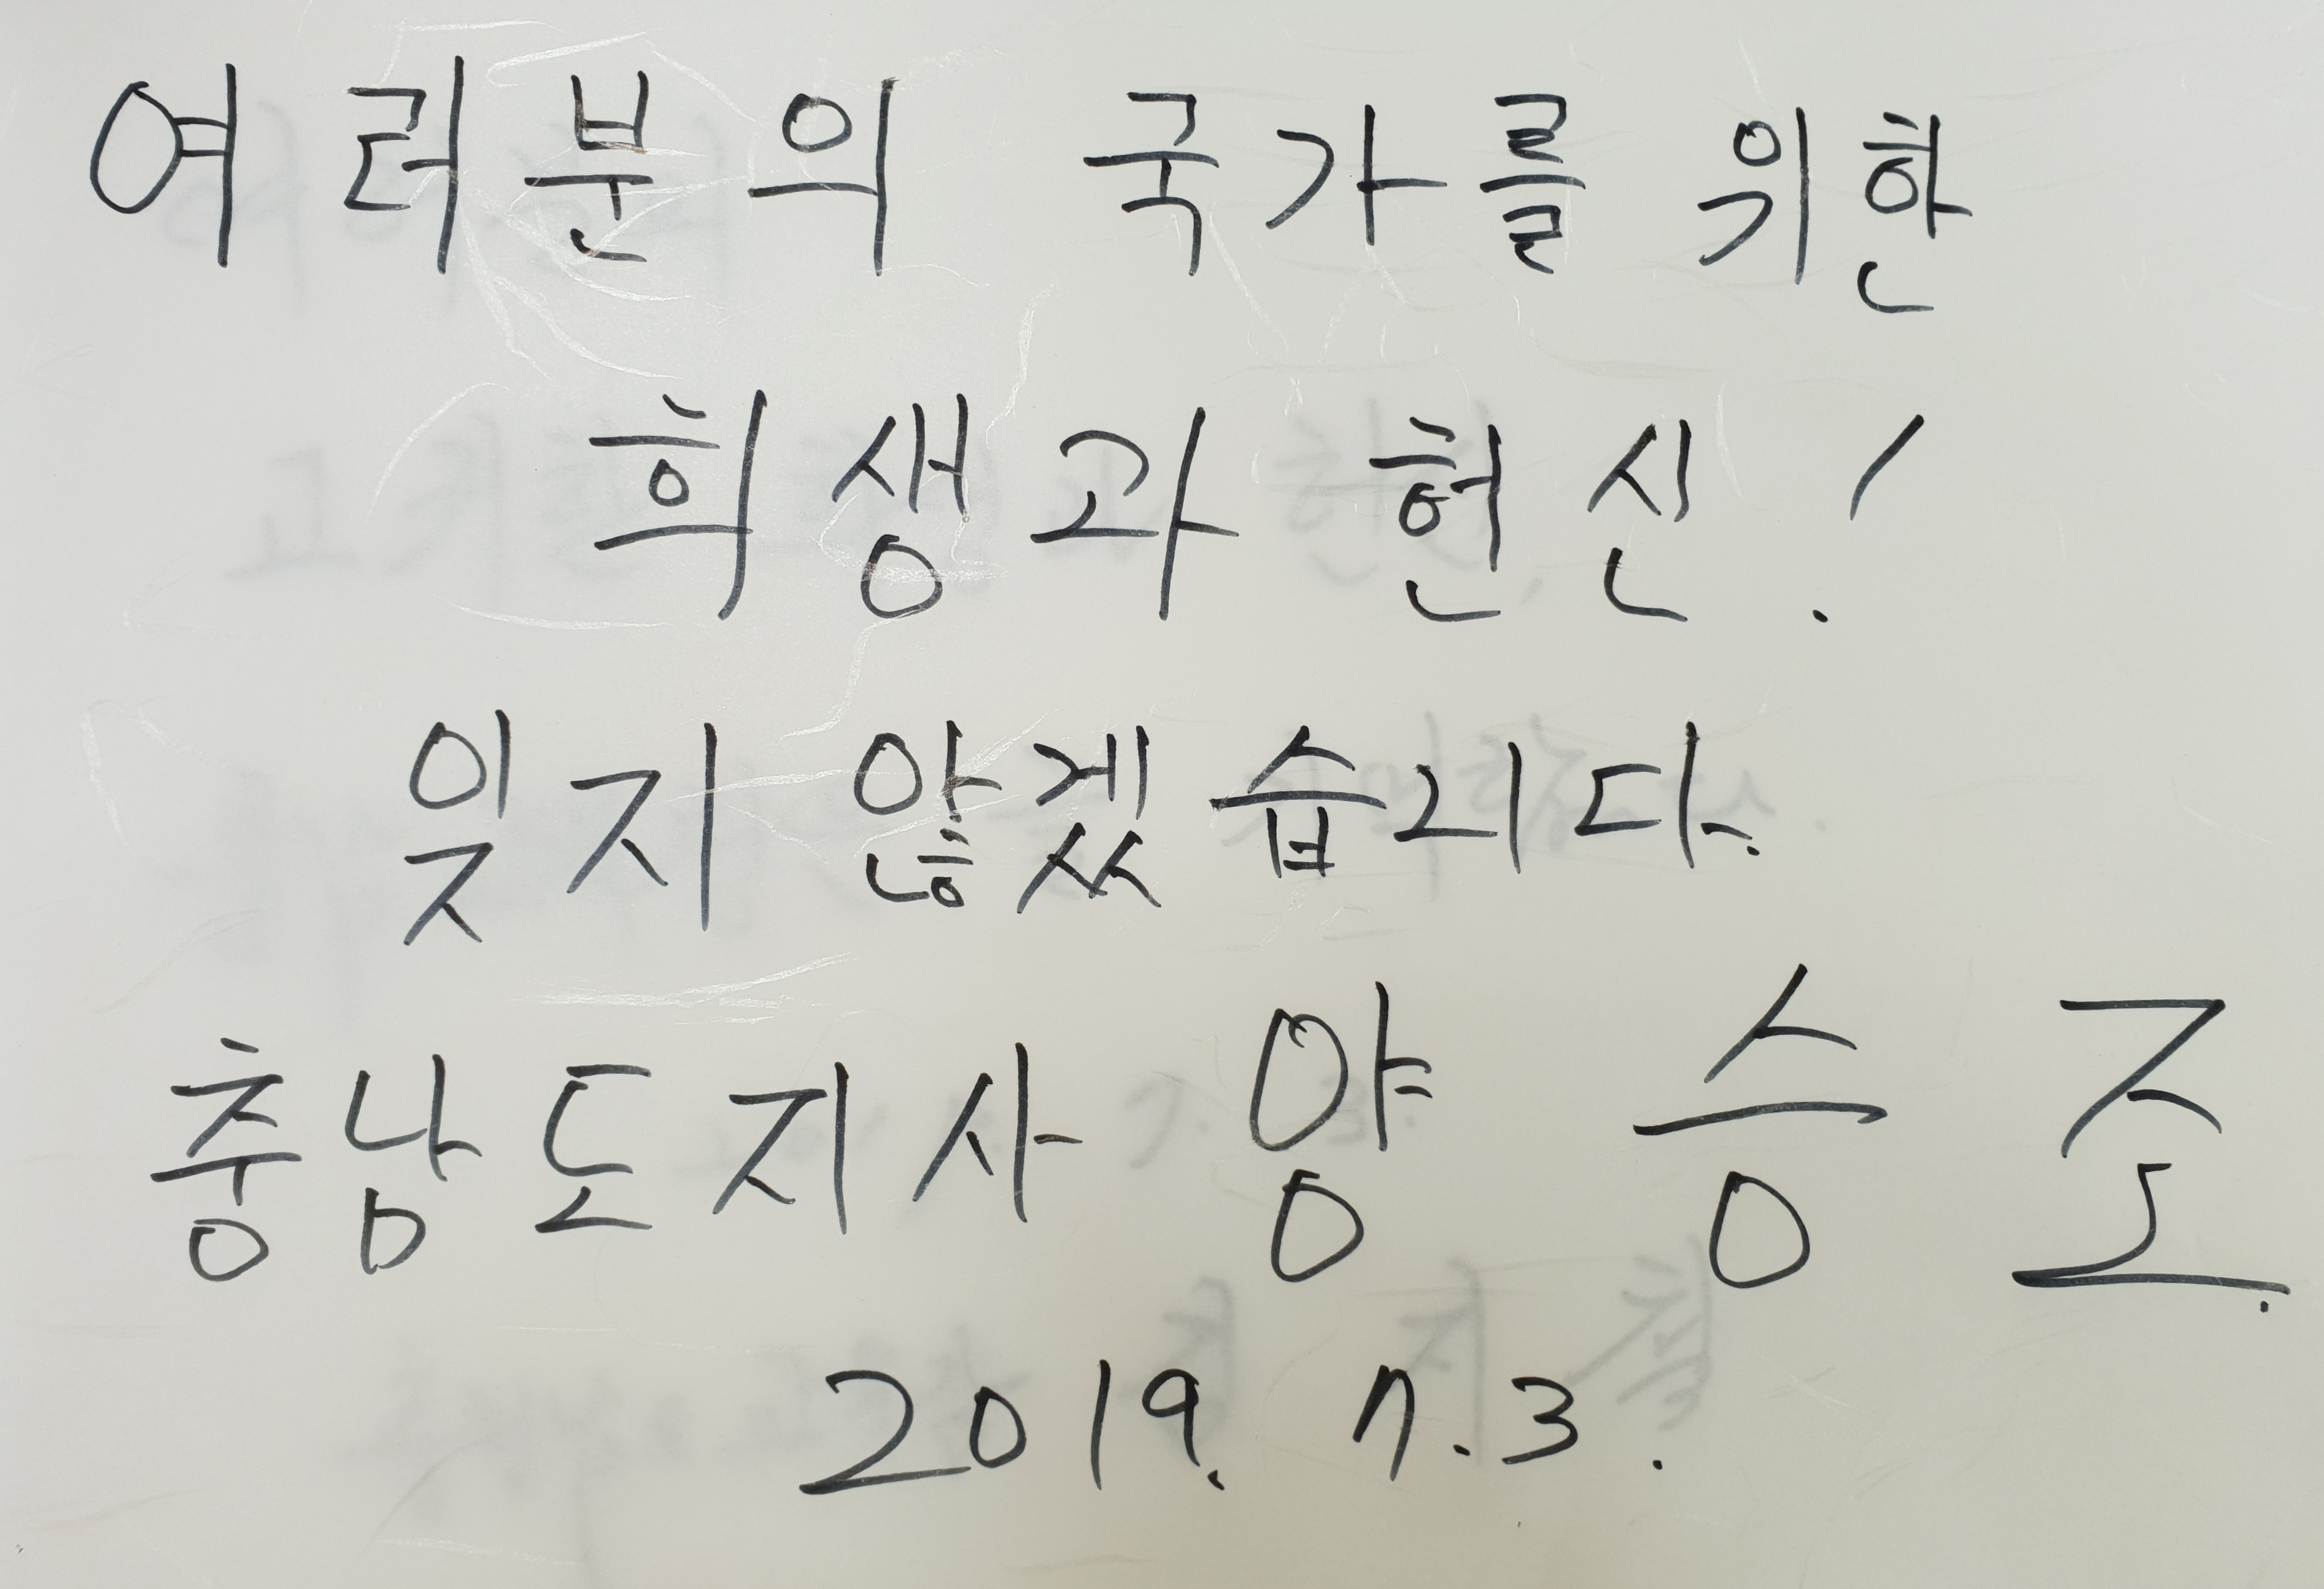 여러분의 국가를 위한
희생과 헌신!
잊지 않겠습니다.
충남도지사 양 승 조.
2019. 7. 3.